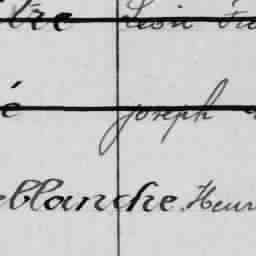 tre Léon
é Joseph
eblanche Henr